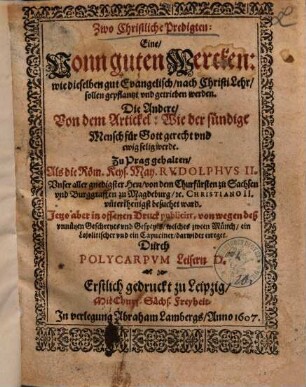 Zwo Christliche Predigten:
Eine/
Vonn guten Wercken:
wie dieselben gut Evangelisch/nach Christi Lehr/
sollen gepflantzt vnd getrieben werden.
Die Andere/
Von dem Artickel: Wie der sündige
Mensch für Gott gerecht vnd
ewig selig werde.
Zu Prag gehalten/
Als die Röm. Keys. May. RVDOLPHVS II.
Vnser aller gnädigster Herr/von dem Churfürsten zu Sachsen
vnd Burggraffen zu Magdeburg/ꝛc. CHRISTIANO II.
vnterthenigst besucht ward.
Jetzo aber in offenen Druck publicirt, von wegen deß
vnnützen Geschreyes vnd Gespeyes/ welches zween Münch/ ein
Capuciner/ darwider erreget.
Durch
POLYCARPVM Leisern D.
Erstlich gedruckt zu Leipzig/
Mit Churf. Sächs. Freyheit.
In verlegung Abraham Lambergs/Anno 1607.